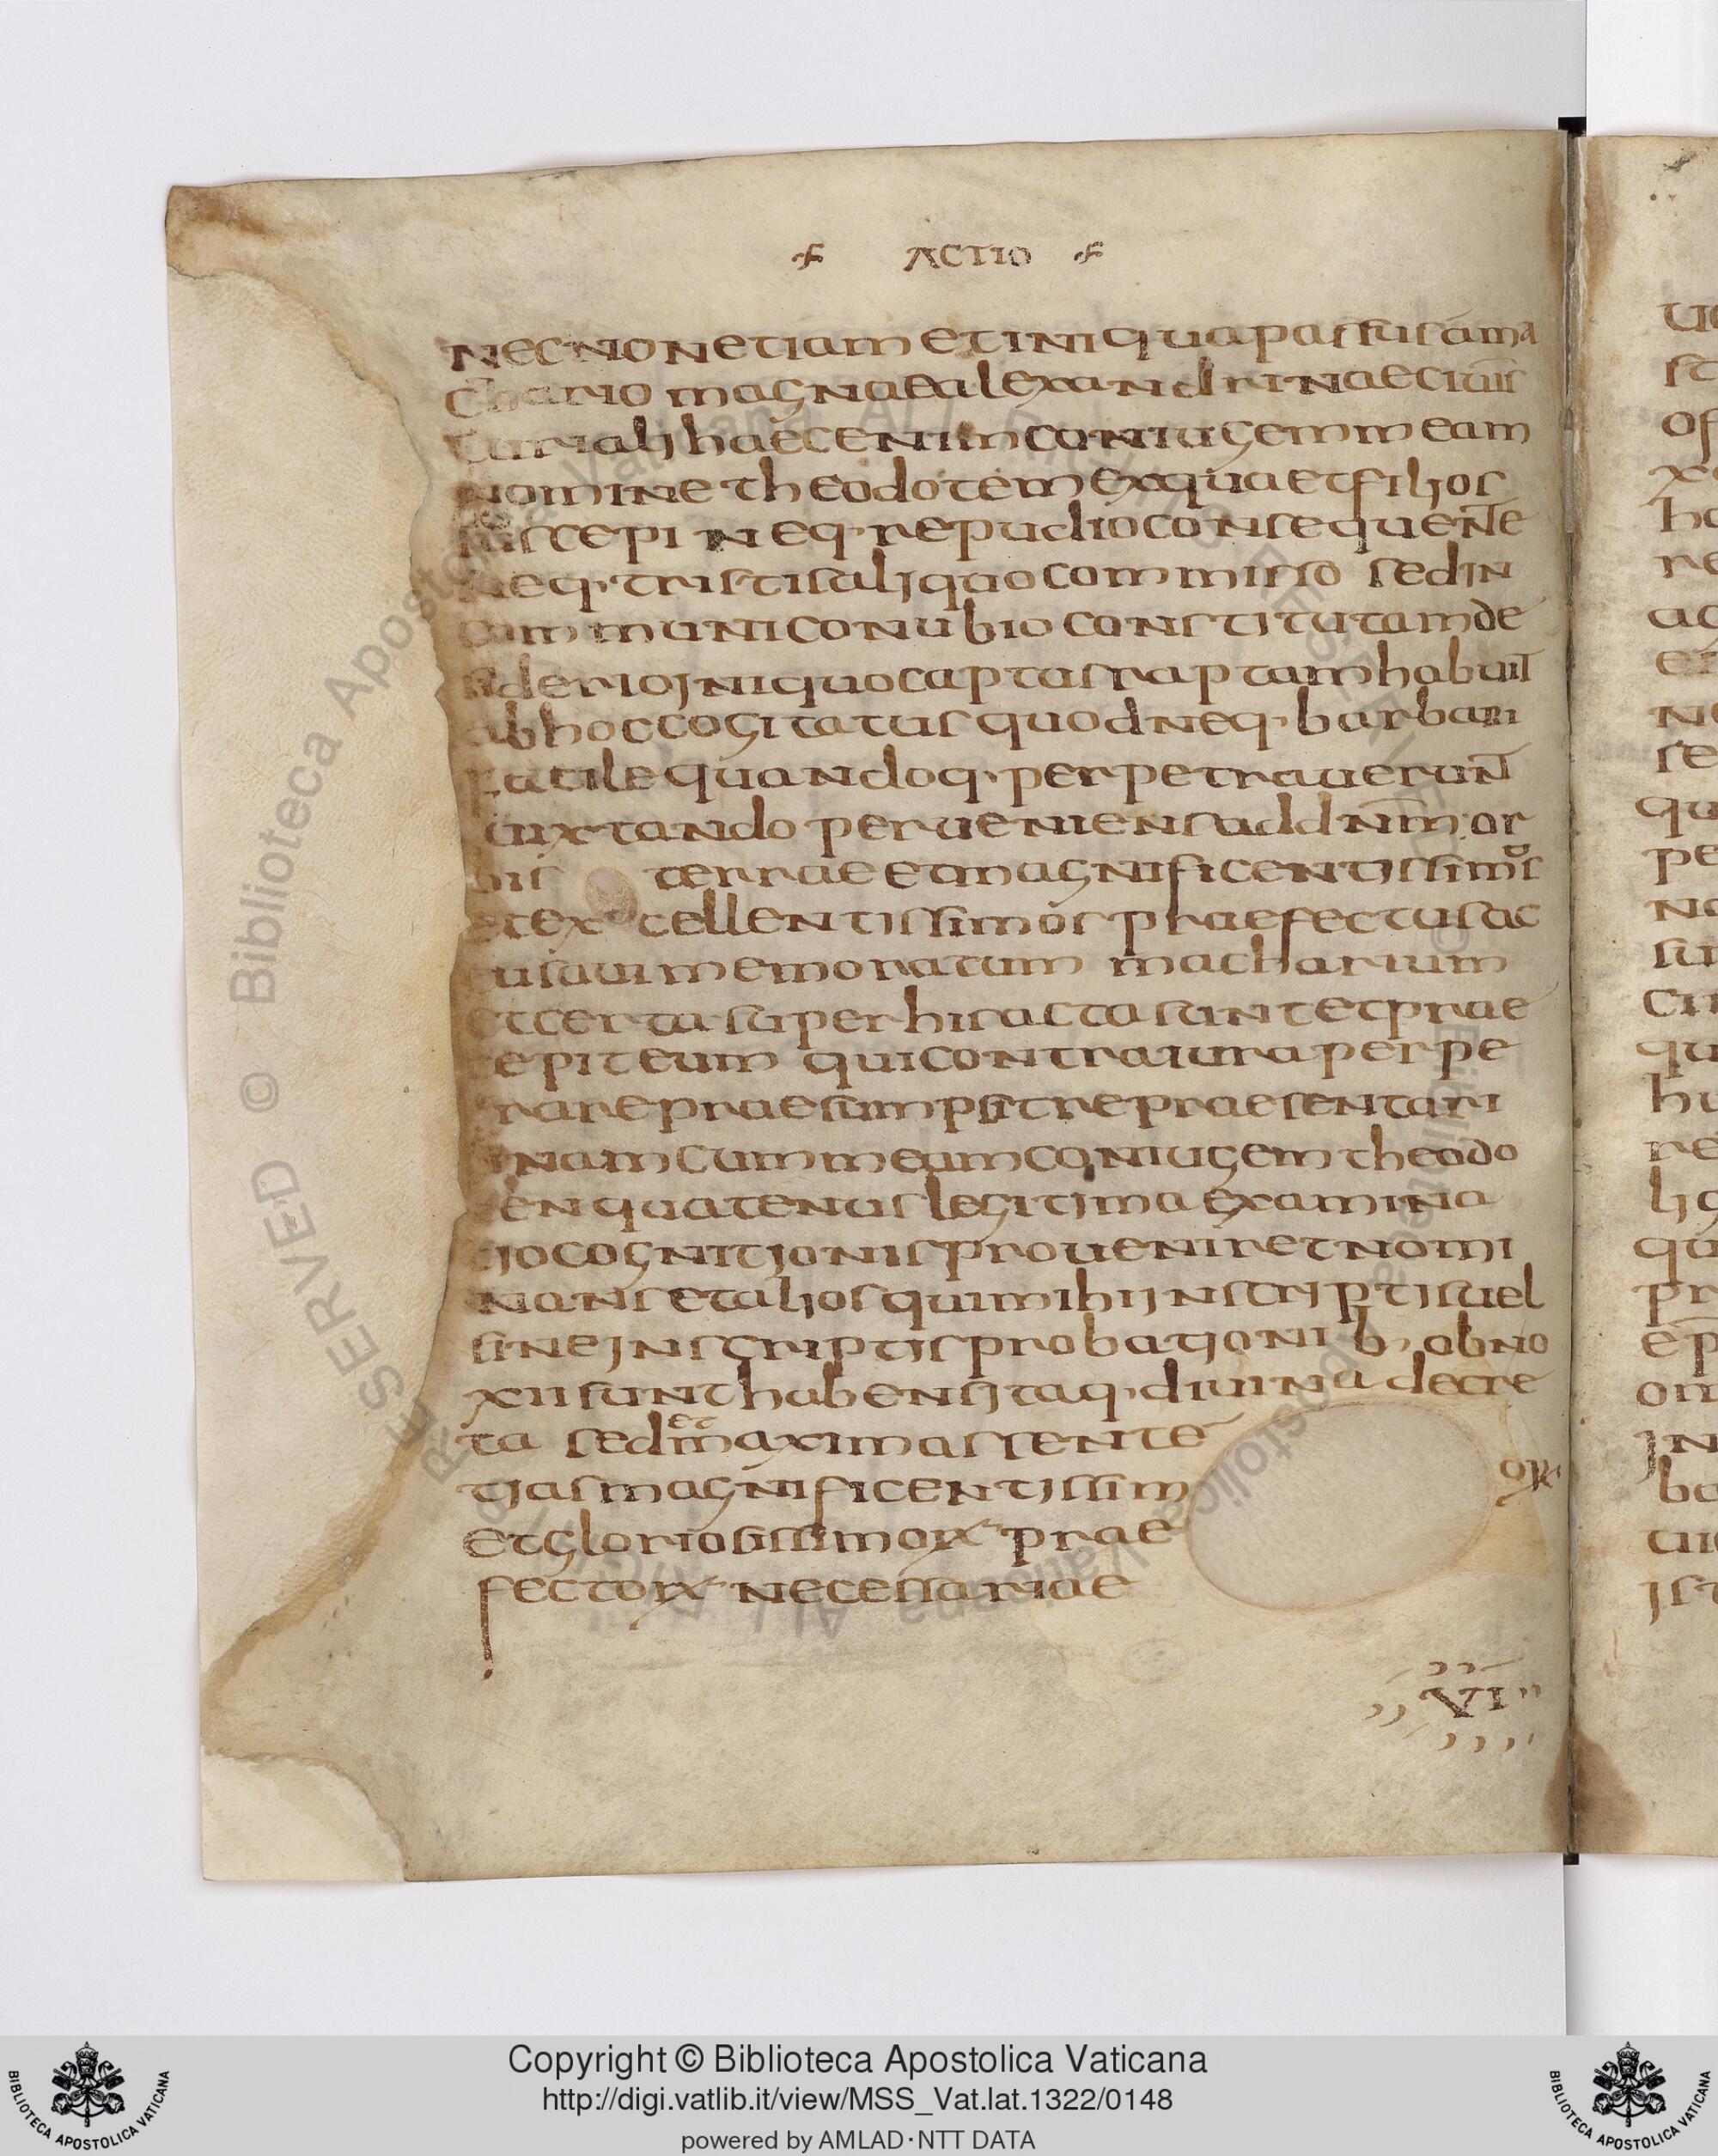 ACTIO
necnon etiam et iniqua passus a ma
chario magnae alexandrinae ciuit
curiali haec enim coniugem meam
nomine theodotem ex qua et filios
suscepi neq· repudio consequente
neq· tristis aliquo commisso sed in
communi conubio constitutam de
siderio iniquo captus raptam habuit
ab hoc cogitatus quod neq· barbari
tale quandoq· perpetraverunt
luxtando perueniens ad dnm or
bis terrae et magnificentissimos
et excellentissimos praefectus ac
cusaui memoratum macharium
et certa super his acta sunt et prae
cepit eum qui contra iura perpe
trare praesumpsit repraesentari
unam cum meam coniugem theodo
ten quatenus legitima examina
tio cognitionis proueniret nomi
nans et alios qui mihi inscriptis uel
sine inscriptis probationib· obno
xii sunt habens itaq· diuina decre
ta sed et maximas sente
tias magnificentissim
orx
et gloriosissimorx prae
fectorx necessariae
VI
Copyright © Biblioteca Apostolica Vaticana
http://digi.vatlib.it/view/MSS_Vat.lat.1322/0148
powered by AMLAD·NTT DATA
BIBLIOTECA APOSTOLICA VATICANA
BIBLIOTECA APOSTOLICA VATICANA